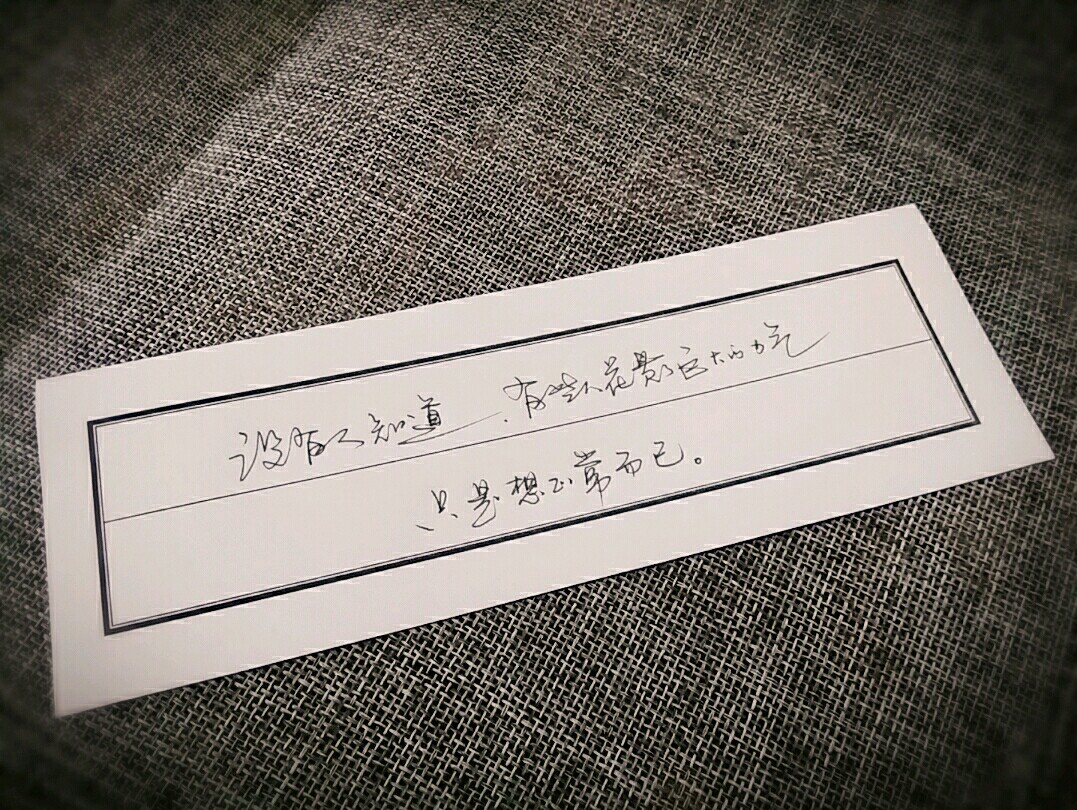 没有人知道，有些人花费巨大的力气
只是想正常而已。